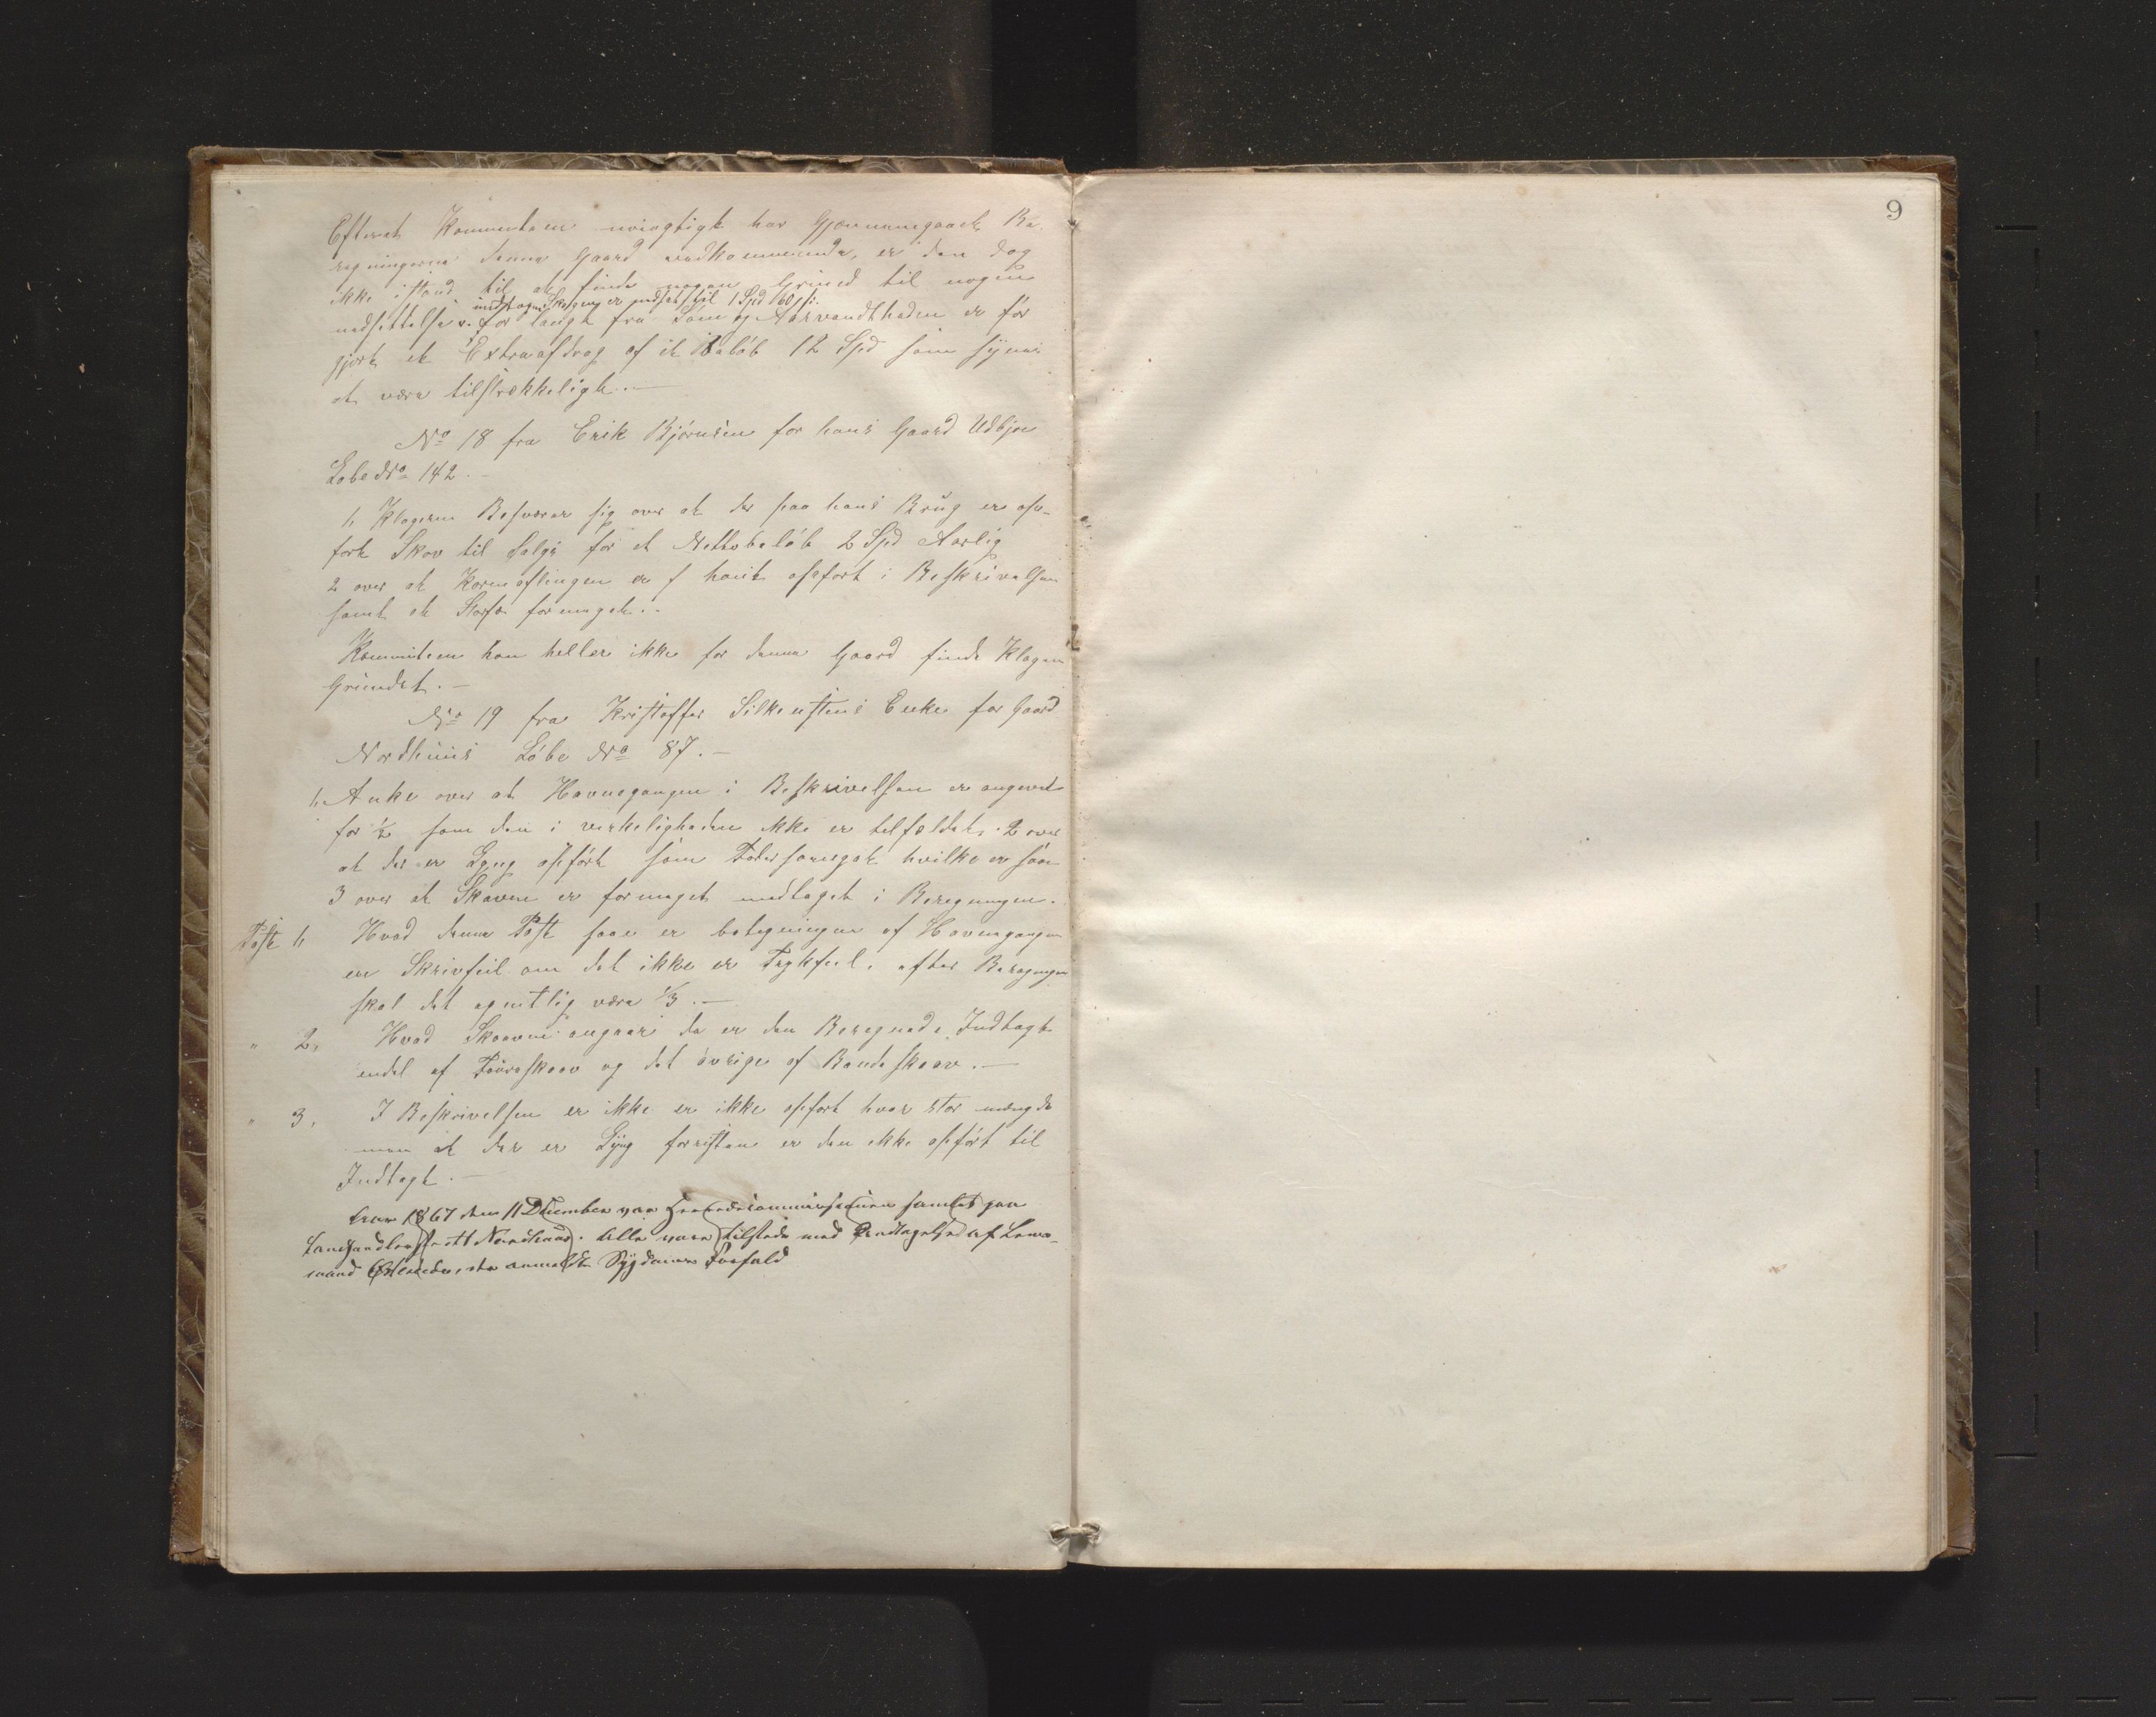 Efterat Kommiteen nöiagtigt har Gjennemgaaet Be-
regningerne denne Gaard vedkommende, er den dog
ikke istand til at finde nogen Grund til nogen
indtagne Skogen er nedsat til 1 Spd 60 s:
nedsettelse v. for langt fra Söm og Aarvandtheden er for
gjort et Extraafdrag af et Beløb 12 Spd som synes
at være tilstrækkeligt. —
No 18 fra Erik Bjørnsen for hans Gaard Udbjoe
Løbe No 142. —
1, Klageren Besværer sig over at der paa hans Brug er op-
ført Skov til Salgs for et Nettobeløb 2 Spd Aarlig
2 over at Kornaflingen er f høit opført i Beskrivelsen
samt et Storfæ formeget. .
Kommiteen kan heller ikke for denne Gaard finde Klagen
Grundet. —
No 19 fra Kristoffer Silkensteens Enke for Gaard
Nordhuus Løbe No 87. —
1, Anke over at Havnegangen i Beskrivelsen er angivet
for ½ som den i virkeligheden ikke er tilfældet. 2 over
at der er Lyng opført som Foder formeget hvilke er
3 over at Skoven er formeget medtaget i Beregningen.
Post 1, Hvad denne Post saa er betegningen af Havnegangen
en Skrivfeil om det ikke er Trykfeil. efter Beregningen
skal det egentlig være ⅓. —
" 2, Hvad Skovene angaar da er den Beregnede Indtægt
endel af Fouraskoov og det övrige af Baandeskoov. —
" 3, I Beskrivelsen er ikke er ikke opført hvor stor mængde
men at der er Lyng forresten er den ikke opført til
Indtægt. —
Aar 1867 den 11 December var Herredscommissionen samlet paa
Landhandlerstedet Nordhuus. Alle vare tilstede med Undtagelse af Lens-
mand der anmeldte Sygdoms Forfald
9